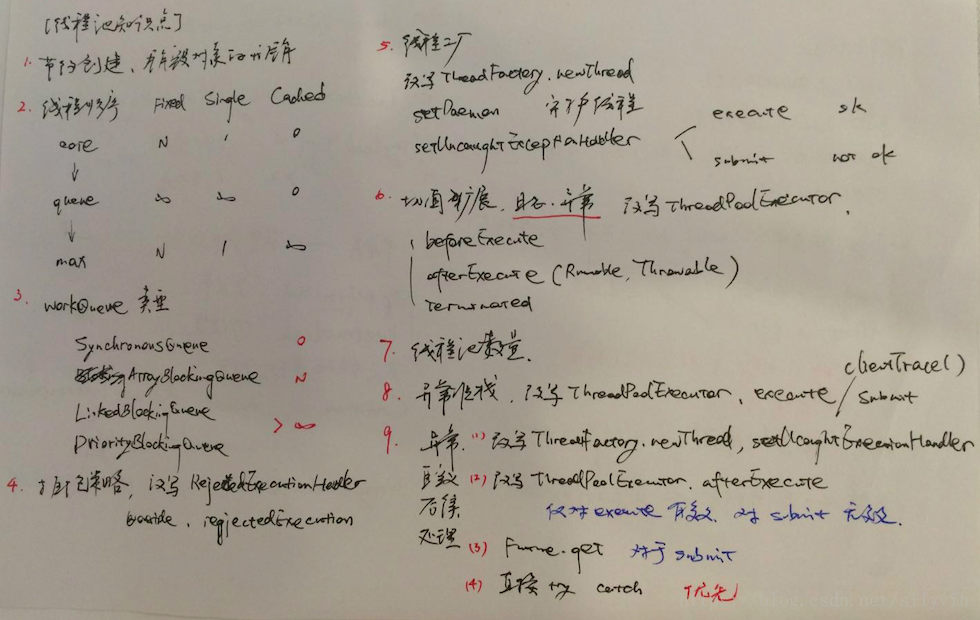 [线程池知识点]
1. 节约创建、销毁对象的开销
2. 线程顺序 Fixed Single Cached
core N 1 0
↓
queue ∞ ∞ 0
↓
max N 1 ∞
3. workQueue 类型
SynchronousQueue 0
ArrayBlockingQueue N
LinkedBlockingQueue
PriorityBlockingQueue > ∞
4. 拒绝策略,改写 RejectedExecutionHandler
override. rejectedExecution
5. 线程工厂
改写 ThreadFactory.newThread
setDaemon 守护线程
setUncaughtExceptionHandler
execute ok
submit not ok
6. 切面扩展,日志·异常 改写 ThreadPoolExecutor.
beforeExecute
afterExecute (Runnable, Throwable)
terminated
7. 线程池数量.
8. 异常堆栈,改写 ThreadPoolExecutor. execute / submit
clientTrace()
9. 异常. (1) 改写 ThreadFactory.newThread, setUncaughtExceptionHandler
(2) 改写 ThreadPoolExecutor. afterExecute
后续 仅对 execute 有效. 对 submit 无效.
处理 (3) Future.get 对于 submit
(4) 直接 try catch 优先